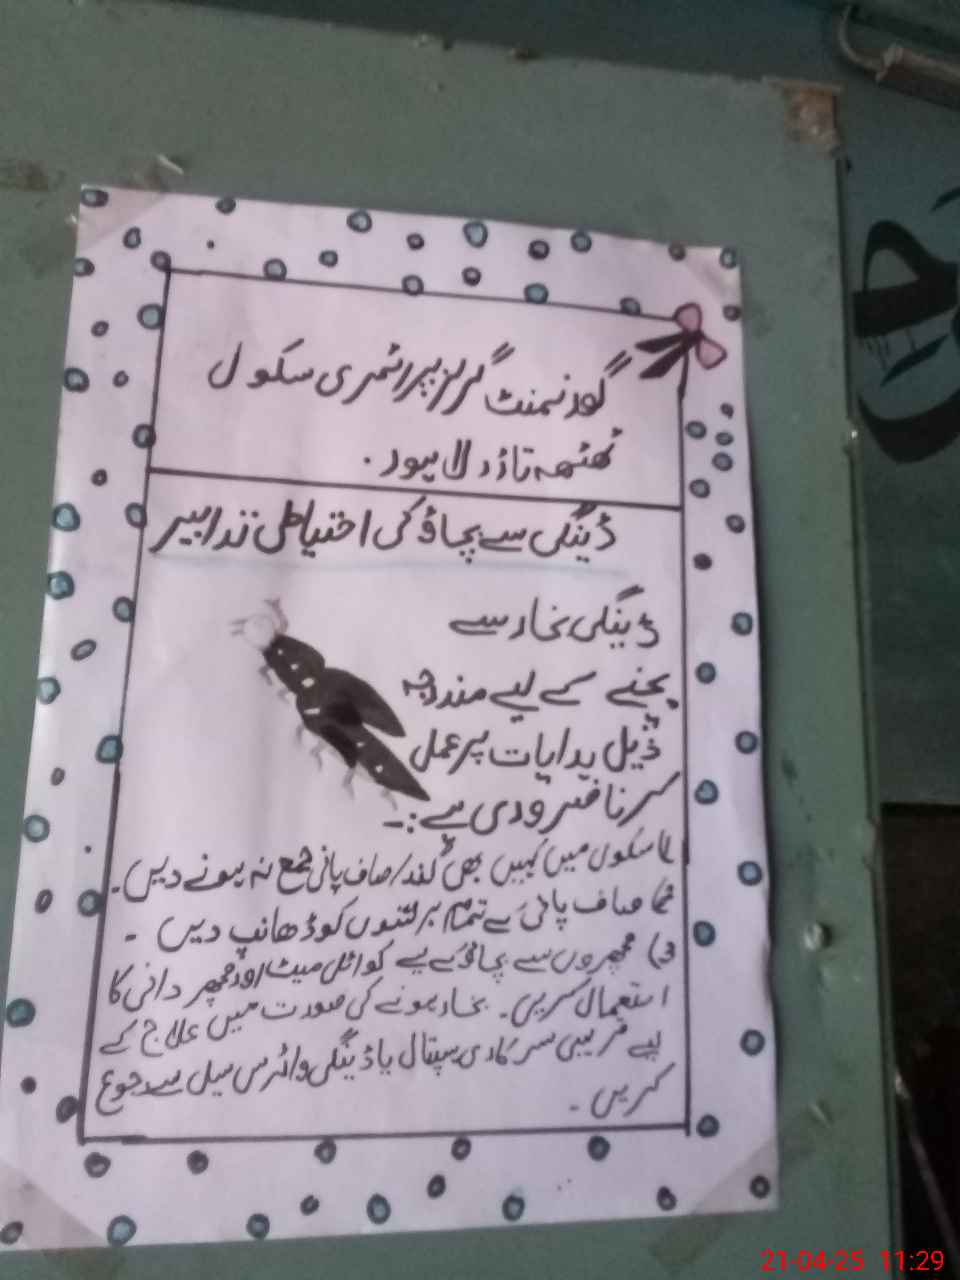 گورنمنٹ گرلز پرائمری سکول
ٹھٹھہ تاڑد لاہور.
ڈینگی سے بچاؤ کی احتیاطی تدابیر
ڈینگی بخار سے
بچنے کے لیے مندرجہ
ذیل ہدایات پر عمل
کرنا ضروری ہے:-
سکول میں کہیں بھی گندا/صاف پانی جمع نہ ہونے دیں۔
صاف پانی کے تمام برتنوں کو ڈھانپ دیں ۔
3) مچھروں سے بچاؤ کے لیے کوائل میٹ اور مچھر دانی کا
استعمال کریں۔ بخار ہونے کی صورت میں علاج کے
لیے قریبی سرکاری ہسپتال یا ڈینگی وائرس سیل سے رجوع
کریں ۔
21-04-25 11:29